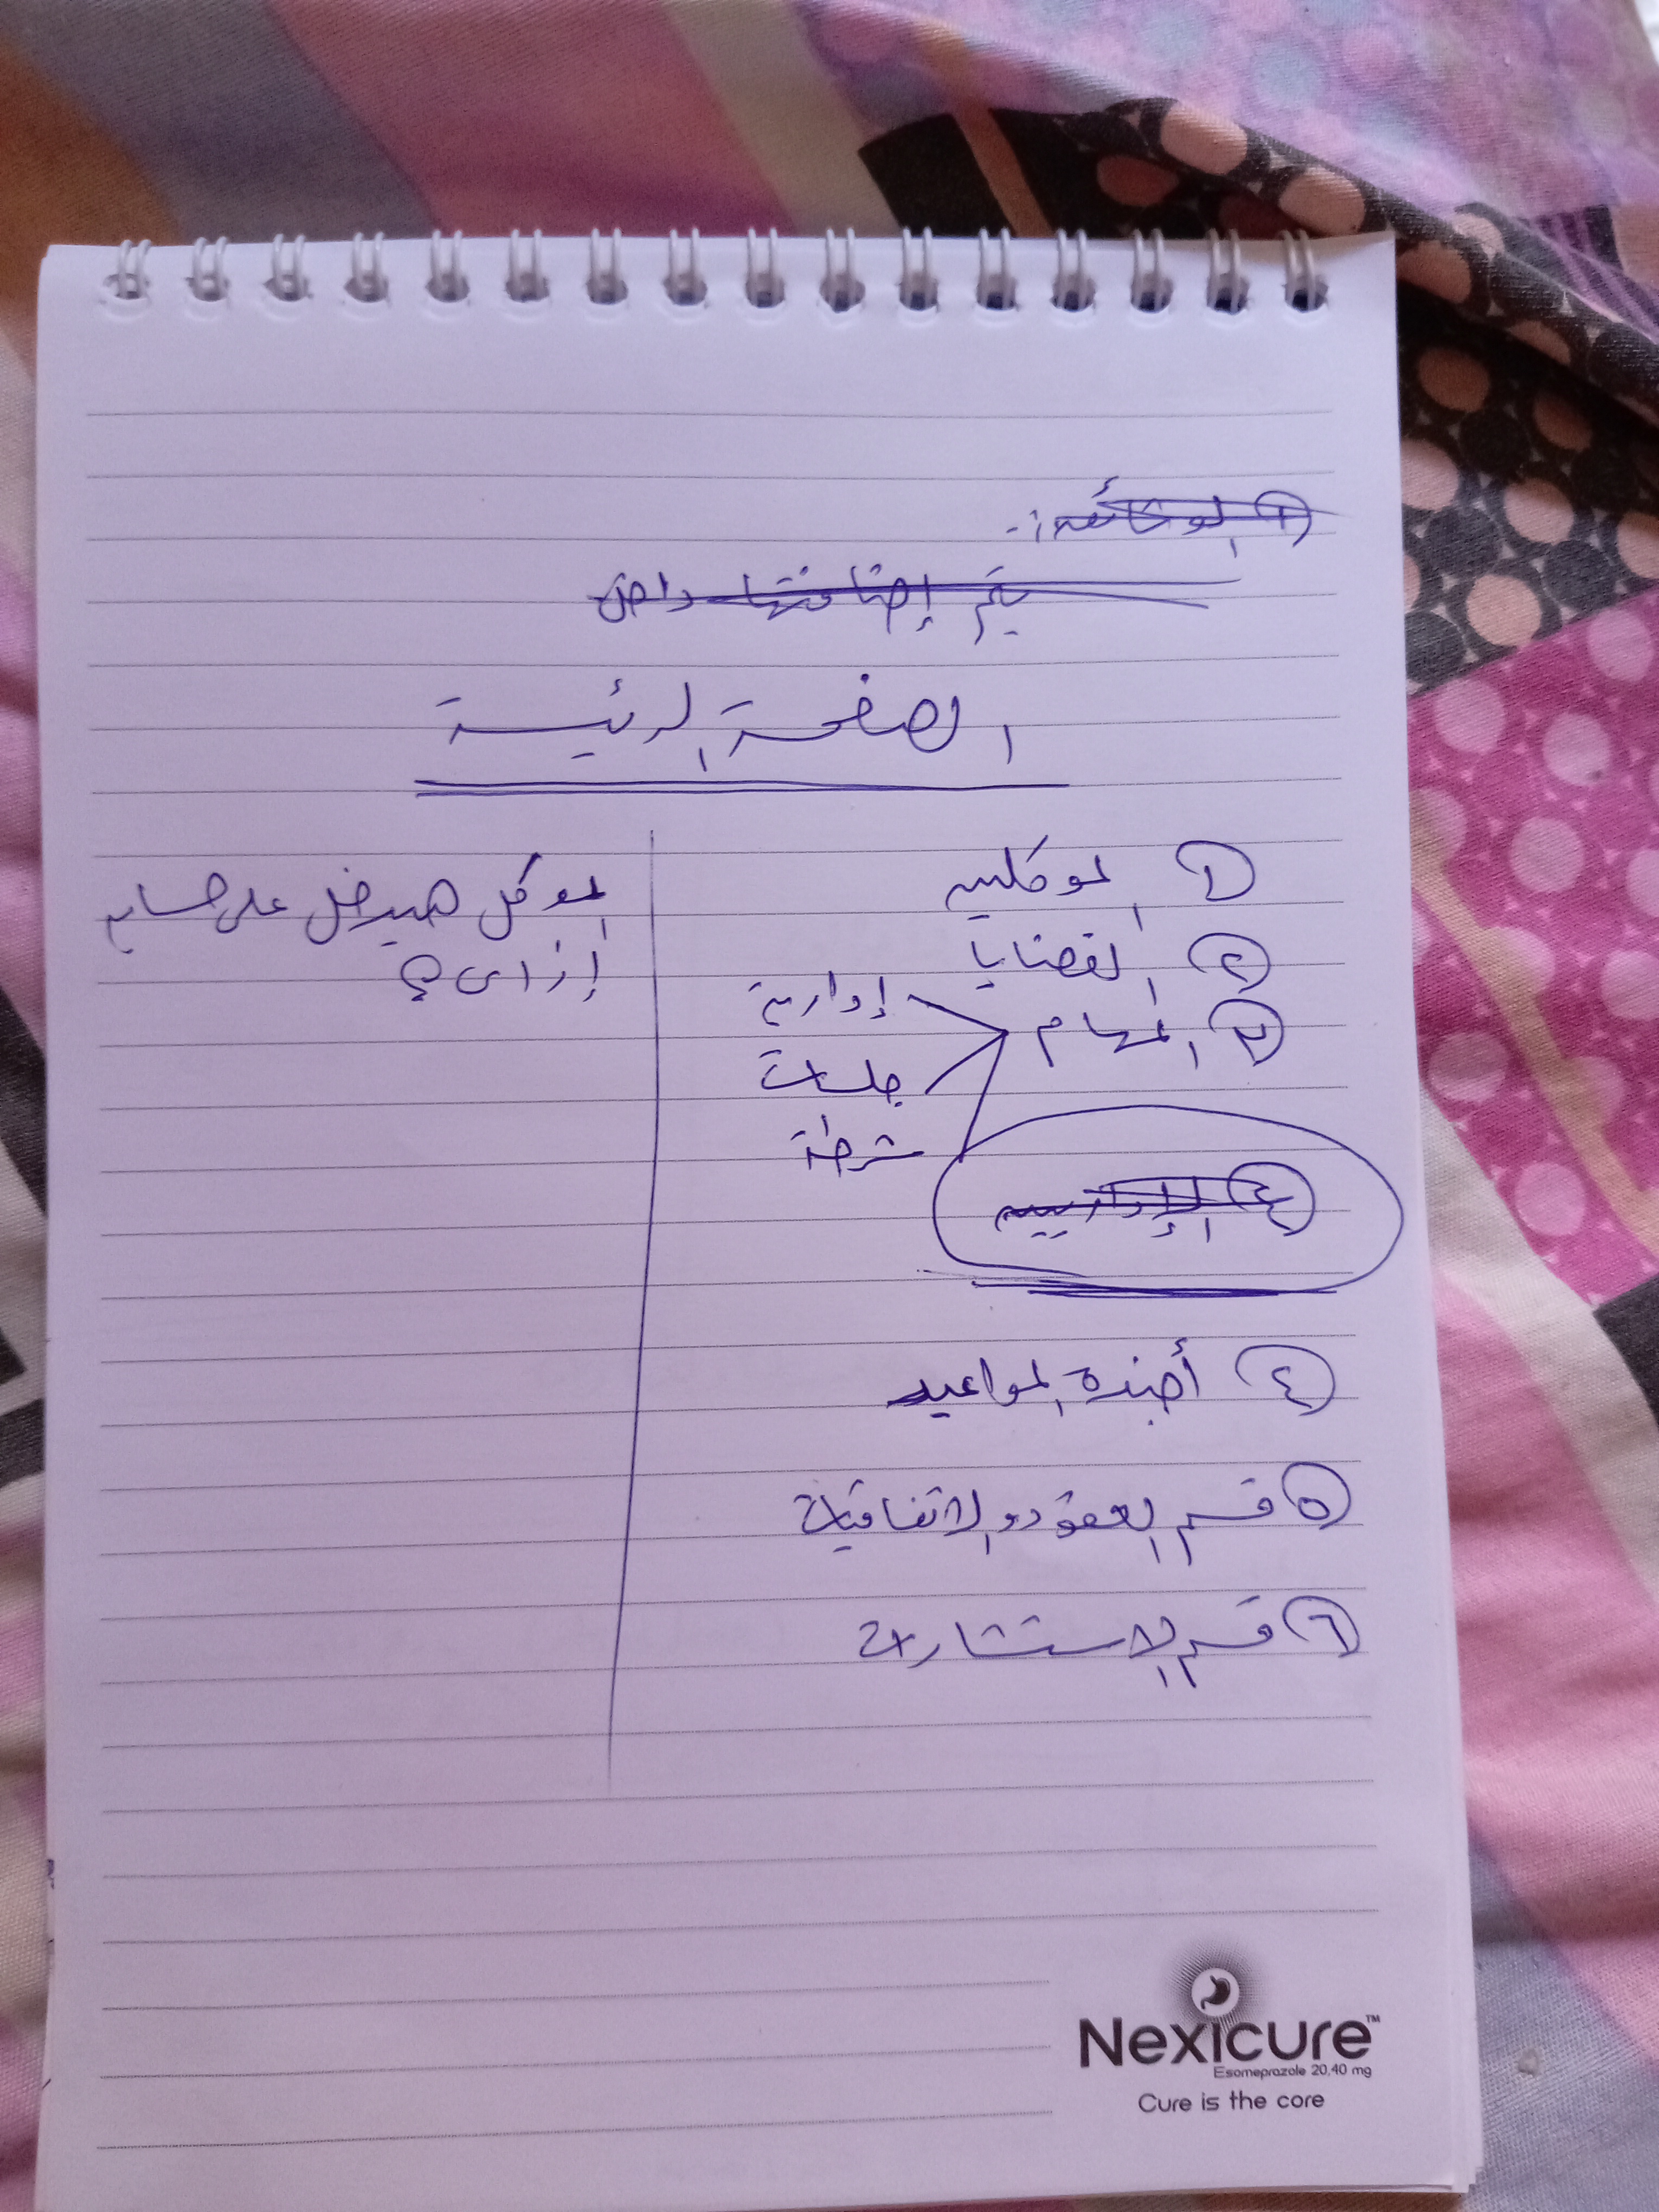 يتم إضافتها داخل
الصفحة الرئيسة
١ الموكلين
٢ القضايا
٣ المهام
إدارية
جلسات
شرطة
٤ الإداريين
٤ أجندة المواعيد
٥ قسم العقود والاتفاقيات
٦ قسم الاستشارات
الموكل هيدخل على حسابه
إزاى؟
Nexicure™
Esomeprazole 20,40 mg
Cure is the core